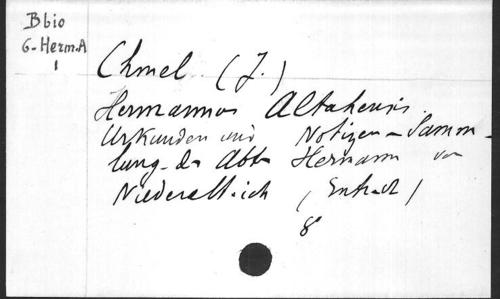 B bio
G-Herm.A
1
Chmel (J.)
Hermannus Altahensis.
Urkunden und Notizen-Samm-
lung des Abts Hermann von
Niederaltaich (Extract)
8°